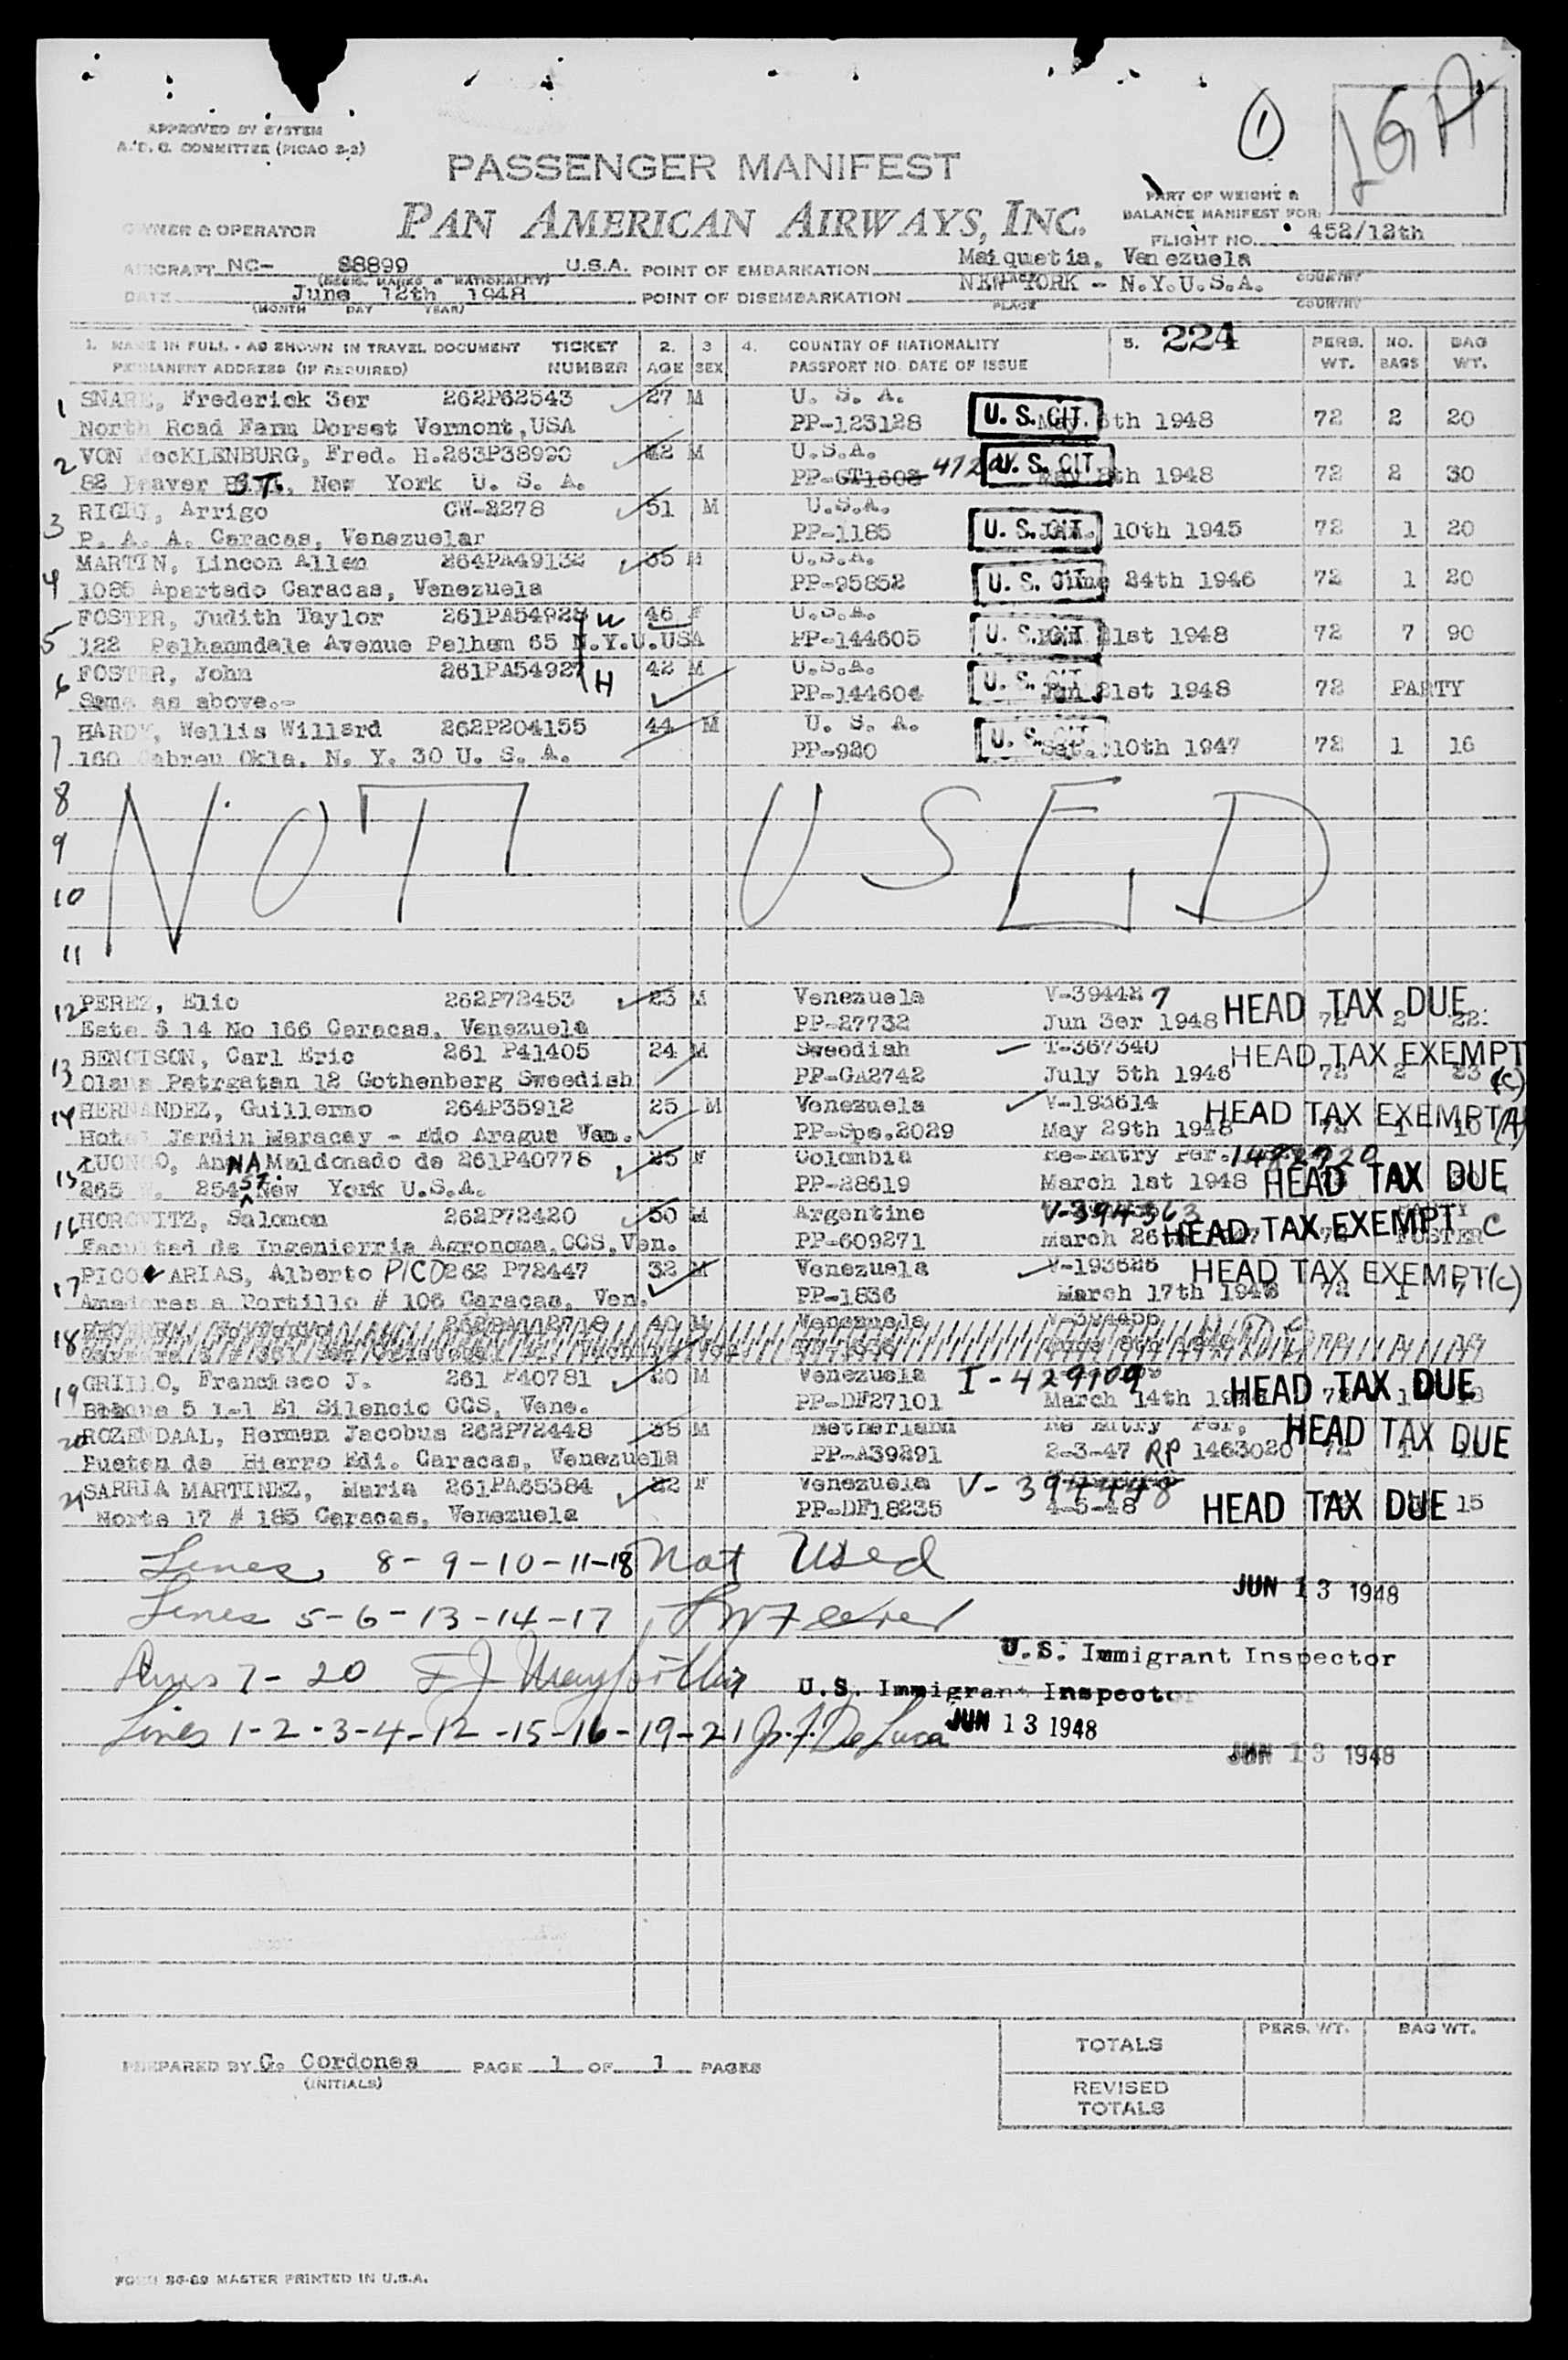 APPROVED BY SYSTEM
A.D.C. COMMITTEE (PICAO 2-2)
1
LGA
PASSENGER MANIFEST
PAN AMERICAN AIRWAYS, INC.
OWNER & OPERATOR
PART OF WEIGHT &
BALANCE MANIFEST FOR:
FLIGHT NO. 452/12th
AIRCRAFT NC- 88899 U.S.A. POINT OF EMBARKATION Maiquetia, Venezuela
DATE June 12th 1948 POINT OF DISEMBARKATION NEW YORK - N.Y.U.S.A.
(MONTH DAY YEAR) PLACE COUNTRY
1. NAME IN FULL - AS SHOWN IN TRAVEL DOCUMENT TICKET 2. 3 4. COUNTRY OF NATIONALITY 5. 224 PERS. NO. BAG
PERMANENT ADDRESS (IF REQUIRED) NUMBER AGE SEX PASSPORT NO. DATE OF ISSUE WT. BAGS WT.
1 SNARE, Frederick 3er 262P62543 27 M U. S. A.
North Road Farm Dorset Vermont, USA PP-123128 U. S. CIT. 1948 72 2 20
2 VON Fred. H. 263P38990 42 M U.S.A.
82 Beaver ST., New York U. S. A. PP- U. S. CIT. 1948 72 2 30
3 Arrigo CW-2278 51 M U.S.A.
P. A. A. Caracas, Venezuelar PP-1185 U. S. CIT. 10th 1945 72 1 20
4 MARTIN, Lincon Allen 264PA49132 35 M U.S.A.
1085 Apartado Caracas, Venezuela PP-95852 U. S. CIT 24th 1946 72 1 20
5 FOSTER, Judith Taylor 261PA54928 W 46 F U.S.A.
122 Pelhamndale Avenue Pelham 65 N.Y.U.USA PP-144605 U. S. CIT 21st 1948 72 7 90
6 FOSTER, John 261PA54927 H 42 M U.S.A.
Same as above.- PP-144604 U. S. CIT Jan 21st 1948 72 PARTY
7 HARDY, Wellis Willard 262P204155 44 M U. S. A.
160 Cabreu Okla. N. Y. 30 U. S. A. PP-920 U. S. 10th 1947 72 1 16
8
NOT USED
9
10
11
12 PEREZ, Elio 262P72453 23 M Venezuela V-394427 HEAD TAX DUE
Este 6 14 No 166 Caracas, Venezuela PP-27732 Jun 3er 1948 72 2 22
13 BENGTSON, Carl Eric 261 P41405 24 M Sweedish T-367340 HEAD TAX EXEMPT
Olaus Petrgatan 12 Gothenberg Sweedish PP-GA2742 July 5th 1946 72 2 23 (C)
14 HERNANDEZ, Guillermo 264P35912 25 M Venezuela V-193614 HEAD TAX EXEMPT (A)
Hotel Jardin Maracay - Edo Aragua Ven. PP-Spe.2029 May 29th 1948
15 LUONGO, ANA Maldonado de 261P40778 25 F Colombia Re-Entry Per.
265 W. 254 ST New York U.S.A. PP-28619 March 1st 1948 HEAD TAX DUE
16 HOROVITZ, Salomon 262P72420 50 M Argentine V-394363
Facultad de Ingenierria Agronoma, CCS, Ven. PP-609271 March 26 HEAD TAX EXEMPT C
17 PICO ARIAS, Alberto PICO 262 P72447 32 M Venezuela V-193626 HEAD TAX EXEMPT (C)
Amadores a Portillo # 106 Caracas, Ven. PP-1836 March 17th 1948 72 1 7
18
19 GRILLO, Francisco J. 261 P40781 20 M Venezuela I-429109
Bloque 5 1-1 El Silencio CCS, Vene. PP-DF27101 March 14th HEAD TAX DUE
20 ROZENDAAL, Herman Jacobus 262P72448 38 M Netherland Re Entry Per, HEAD TAX DUE
Puetem de Hierro Edi. Caracas, Venezuela PP-A39291 2-3-47 RP 1463020
21 SARRIA MARTINEZ, Maria 261PA65384 22 F Venezuela V-394448
Norte 17 # 185 Caracas, Venezuela PP-DF18235 4-5-48 HEAD TAX DUE 15
Lines 8-9-10-11-18 Not Used
JUN 13 1948
Lines 5-6-13-14-17
U.S. Immigrant Inspector
7-20
U.S. Immigrant Inspector
Lines 1-2-3-4-12-15-16-19-21 De Luca JUN 13 1948
JUN 13 1948
PREPARED BY G. Cordones PAGE 1 OF 1 PAGES
(INITIALS)
PERS. WT. BAG WT.
TOTALS
REVISED
TOTALS
FORM 36-69 MASTER PRINTED IN U.S.A.